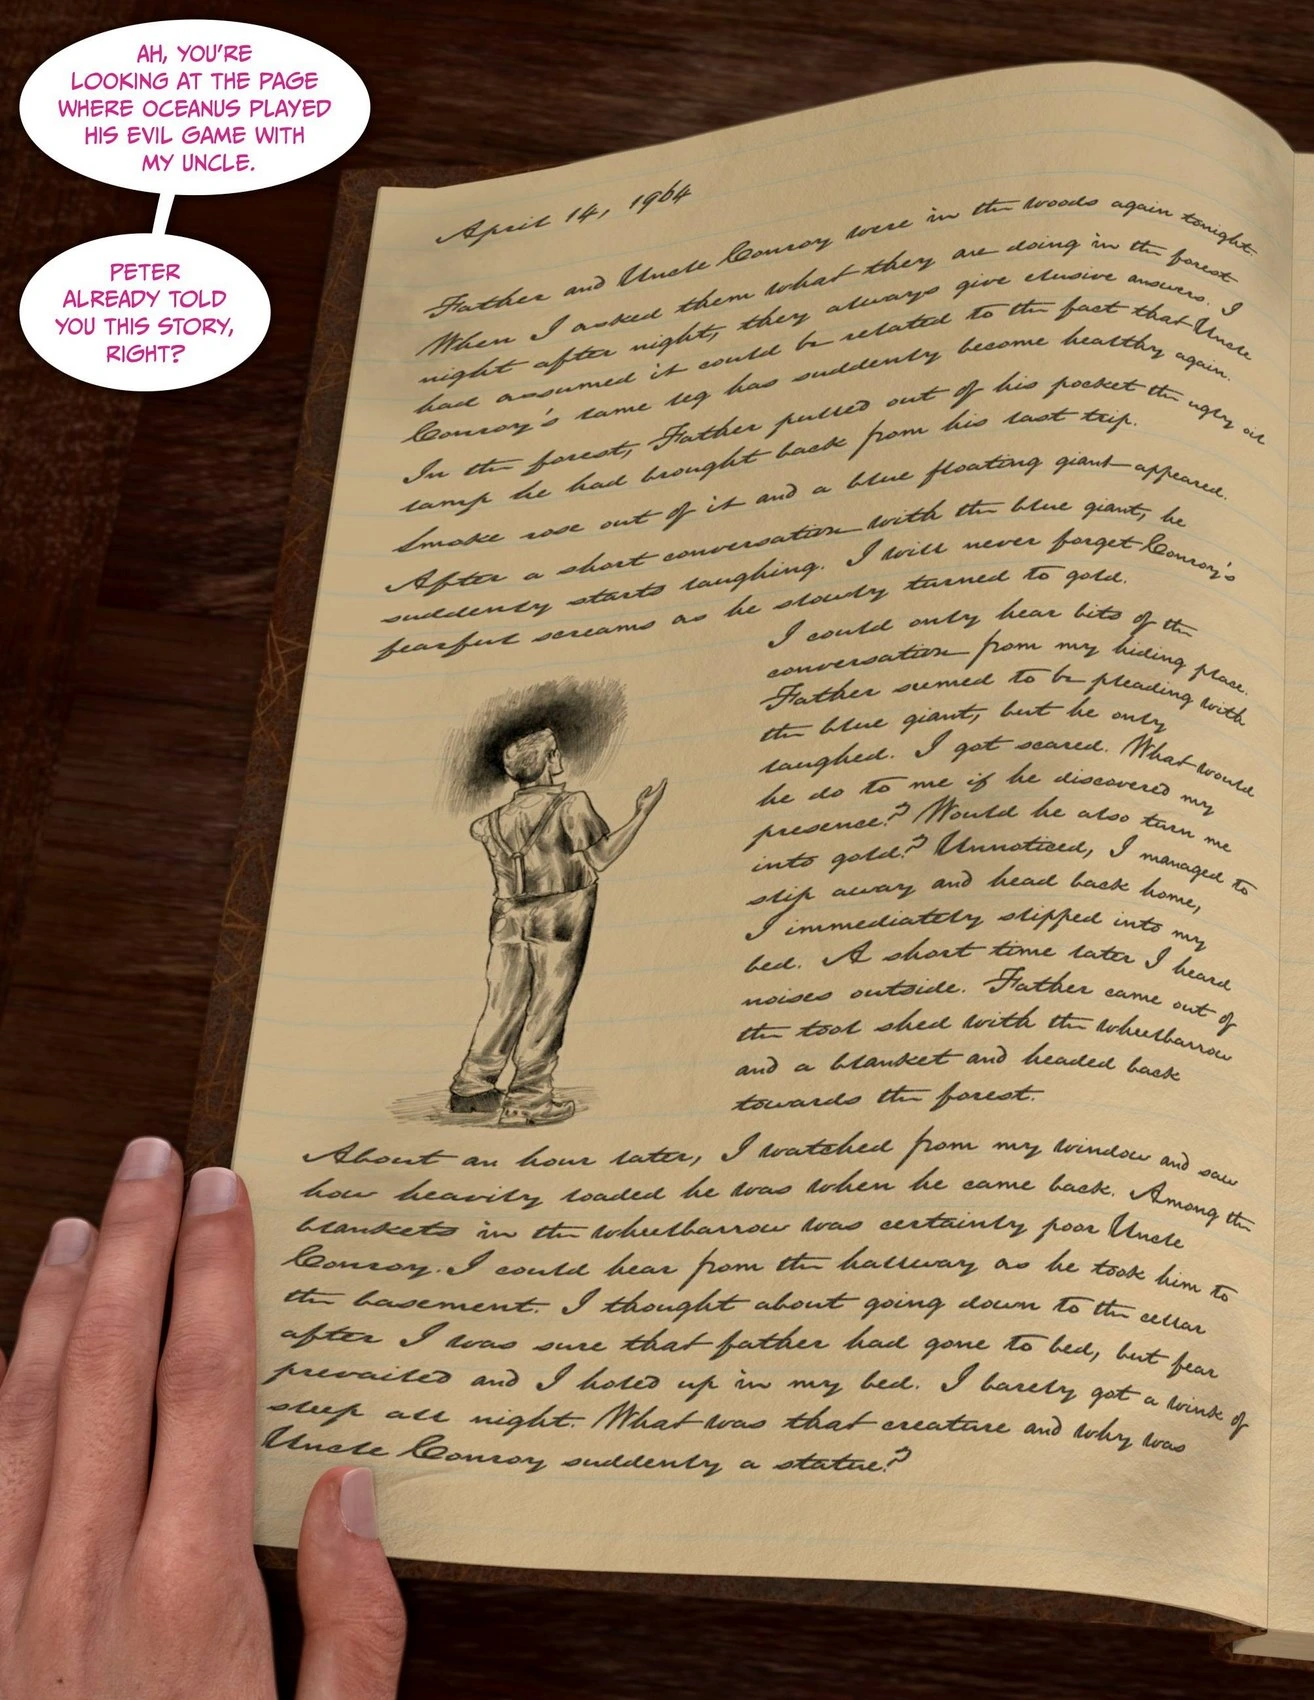 AH, YOU'RE
LOOKING AT THE PAGE
WHERE OCEANUS PLAYED
HIS EVIL GAME WITH
MY UNCLE.
PETER
ALREADY TOLD
YOU THIS STORY,
RIGHT?
April 14, 1964
Father and Uncle Conroy were in the woods again tonight.
When I asked them what they are doing in the forest
night after night, they always give elusive answers. I
had assumed it could be related to the fact that Uncle
Conroy's lame leg has suddenly become healthy again.
In the forest, Father pulled out of his pocket the ugly oil
lamp he had brought back from his last trip.
Smoke rose out of it and a blue floating giant appeared.
After a short conversation with the blue giant, he
suddenly starts laughing. I will never forget Conroy's
fearful screams as he slowly turned to gold.
I could only hear bits of the
conversation from my hiding place.
Father seemed to be pleading with
the blue giant, but he only
laughed. I got scared. What would
he do to me if he discovered my
presence? Would he also turn me
into gold? Unnoticed, I managed to
slip away and head back home,
I immediately slipped into my
bed. A short time later I heard
noises outside. Father came out of
the tool shed with the wheelbarrow
and a blanket and headed back
towards the forest.
About an hour later, I watched from my window and saw
how heavily loaded he was when he came back. Among the
blankets in the wheelbarrow was certainly poor Uncle
Conroy. I could hear from the hallway as he took him to
the basement. I thought about going down to the cellar
after I was sure that father had gone to bed, but fear
prevailed and I holed up in my bed. I barely got a wink of
sleep all night. What was that creature and why was
Uncle Conroy suddenly a statue?